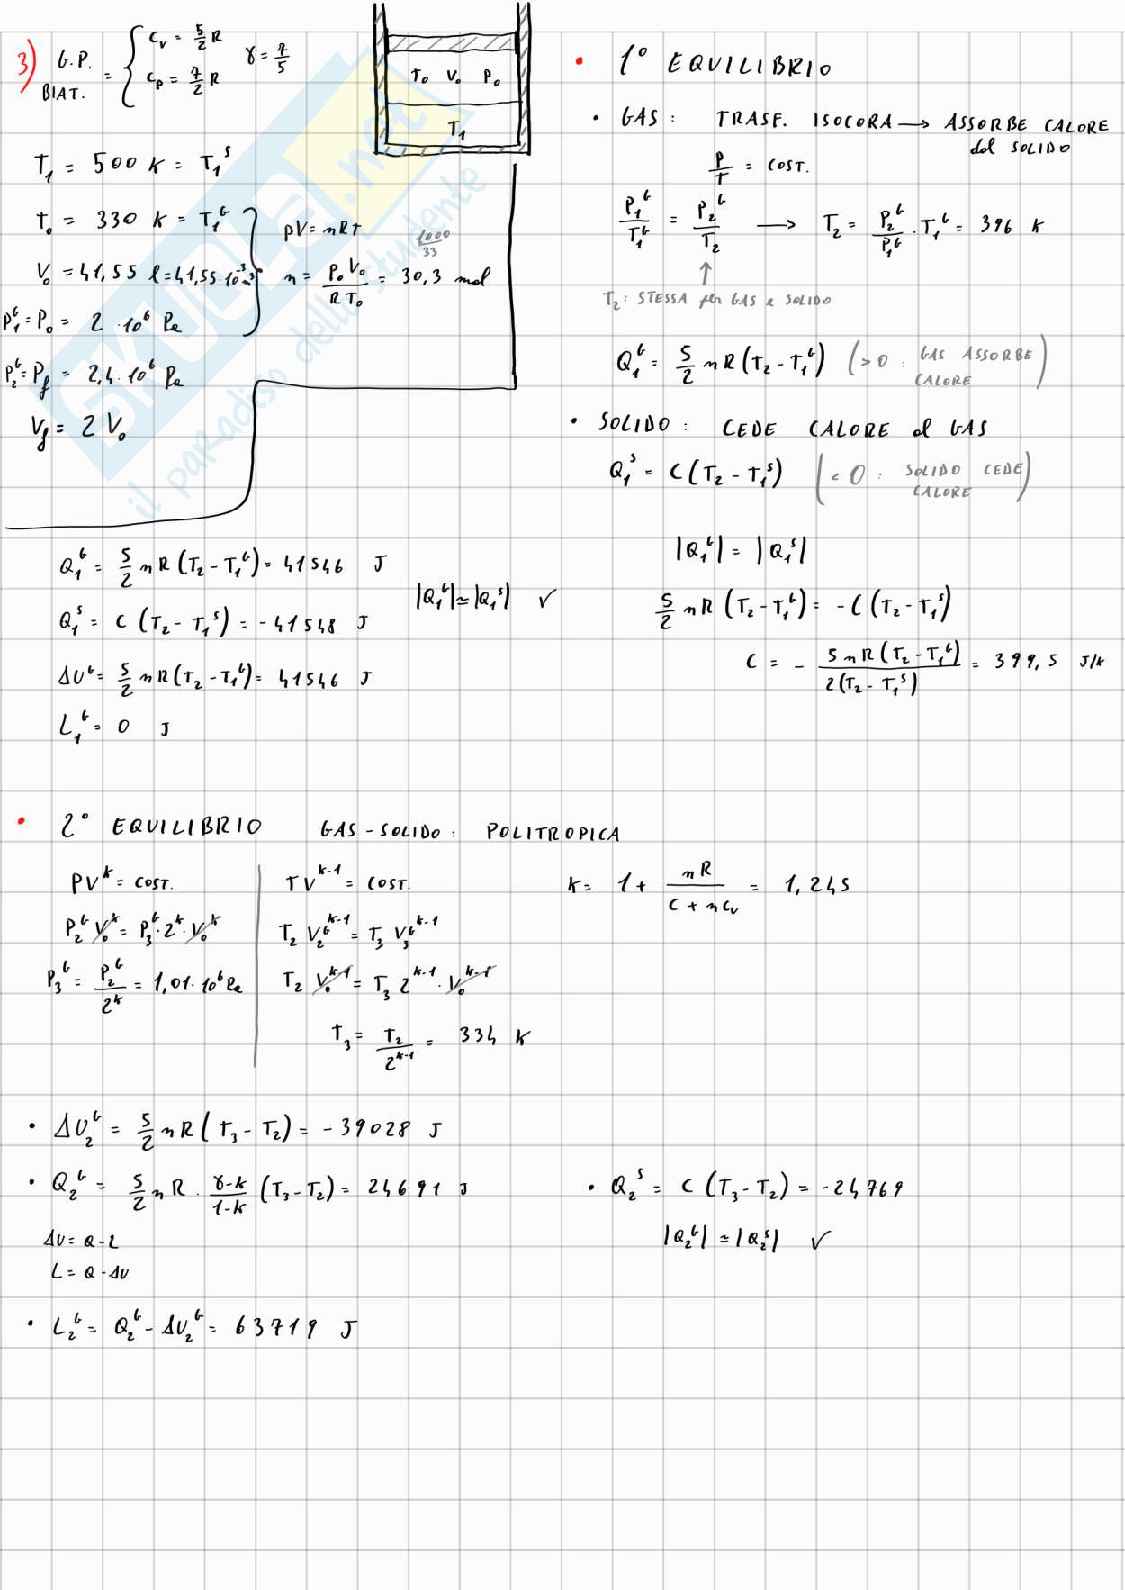 3) G.P. BIAT. = { c_v = 5/2 R
c_p = 7/2 R
γ = 7/5
T_0 V_0 P_0
T_1
T_1 = 500 K = T_1^S
T_0 = 330 K = T_1^G
V_0 = 41,55 l = 41,55·10^-3
P_1^G = P_0 = 2·10^6 Pa
PV = nRT
1000/33
n = P_0 V_0 / R T_0 = 30,3 mol
P_2^G = P_f = 2,4·10^6 Pa
V_f = 2 V_0
• 1° EQUILIBRIO
• GAS : TRASF. ISOCORA → ASSORBE CALORE
dal SOLIDO
P/T = COST.
P_1^G/T_1^G = P_2^G/T_2 → T_2 = P_2^G/P_1^G · T_1^G = 396 K
↑
T_2 : STESSA per GAS e SOLIDO
Q_1^G = 5/2 nR (T_2 - T_1^G) (>0 : GAS ASSORBE
CALORE)
• SOLIDO : CEDE CALORE al GAS
Q_1^S = C (T_2 - T_1^S) (<0 : SOLIDO CEDE
CALORE)
|Q_1^G| = |Q_1^S|
5/2 nR (T_2 - T_1^G) = -C (T_2 - T_1^S)
C = - 5nR (T_2 - T_1^G) / 2(T_2 - T_1^S) = 399,5 J/K
Q_1^G = 5/2 nR (T_2 - T_1^G) = 41546 J
Q_1^S = C (T_2 - T_1^S) = -41548 J
|Q_1^G| ≃ |Q_1^S| √
ΔU^G = 5/2 nR (T_2 - T_1^G) = 41546 J
L_1^G = 0 J
• 2° EQUILIBRIO GAS - SOLIDO : POLITROPICA
PV^k = COST.
P_2^G V_0^k = P_3^G · 2^k · V_0^k
P_3^G = P_2^G / 2^k = 1,01·10^6 Pa
TV^k-1 = COST.
T_2 V_2^G k-1 = T_3 V_3^G k-1
T_2 V_0^k-1 = T_3 2^k-1 · V_0^k-1
T_3 = T_2 / 2^k-1 = 334 K
k = 1 + nR / C + nc_v = 1,245
• ΔU_2^G = 5/2 nR (T_3 - T_2) = -39028 J
• Q_2^G = 5/2 nR · γ-k/1-k (T_3 - T_2) = 24691 J
• Q_2^S = C (T_3 - T_2) = -24769
|Q_2^G| ≃ |Q_2^S| √
ΔU = Q - L
L = Q - ΔU
• L_2^G = Q_2^G - ΔU_2^G = 63719 J
SKUOLA.net
il paradiso dello studente